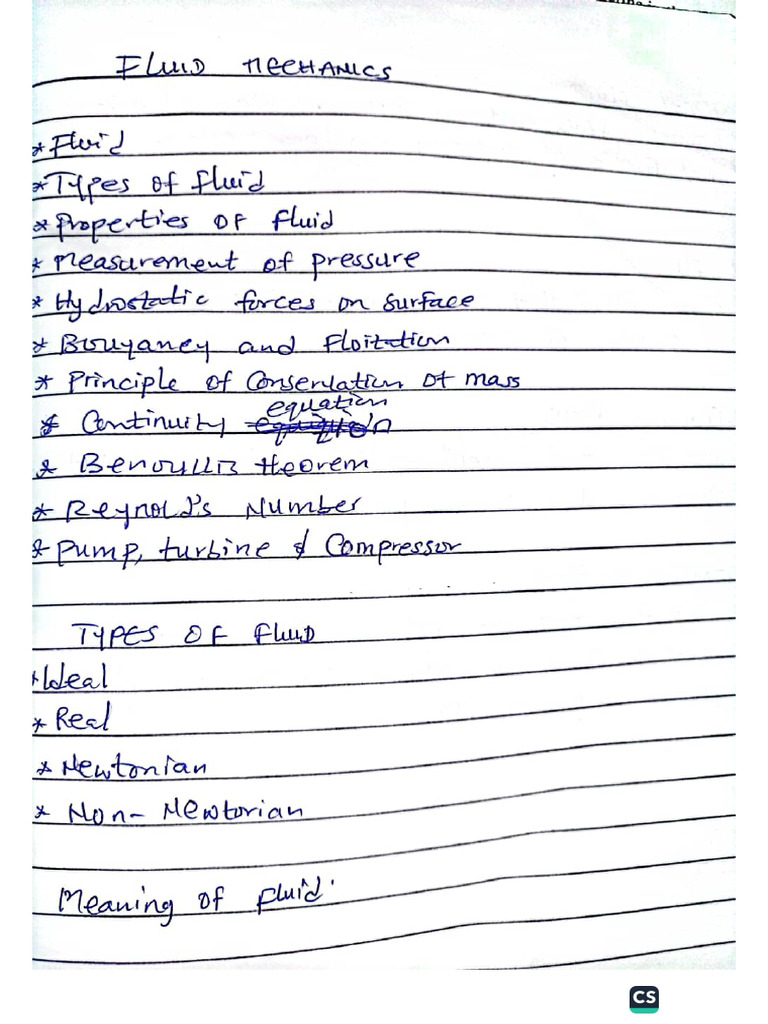 FLUID MECHANICS
* Fluid
* Types of fluid
* Properties OF fluid
* Measurement of pressure
* Hydrostatic forces on surface
* Bouyancy and Floitation
* Principle of Conservation of mass
* Continuity equation
* Benoullis theorem
* Reynold's Number
* Pump, turbine & Compressor
TYPES OF FLUID
* Ideal
* Real
* Newtonian
* Non-Newtonian
Meaning of fluid.
CS